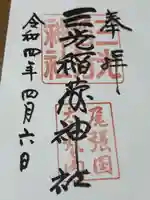 奉拝
三光稲荷神社
令和四年四月六日
三光
尾張国